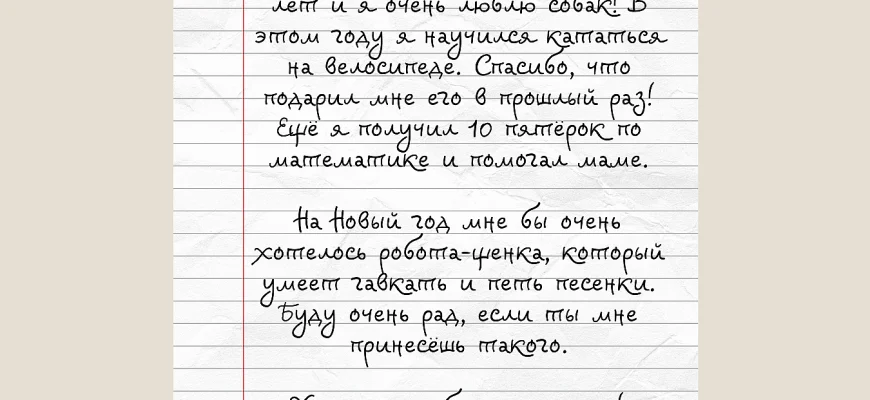 лет и я очень люблю собак! В
этом году я научился кататься
на велосипеде. Спасибо, что
подарил мне его в прошлый раз!
Ещё я получил 10 пятёрок по
математике и помогал маме.
На Новый год мне бы очень
хотелось робота-щенка, который
умеет гавкать и петь песенки.
Буду очень рад, если ты мне
принесёшь такого.